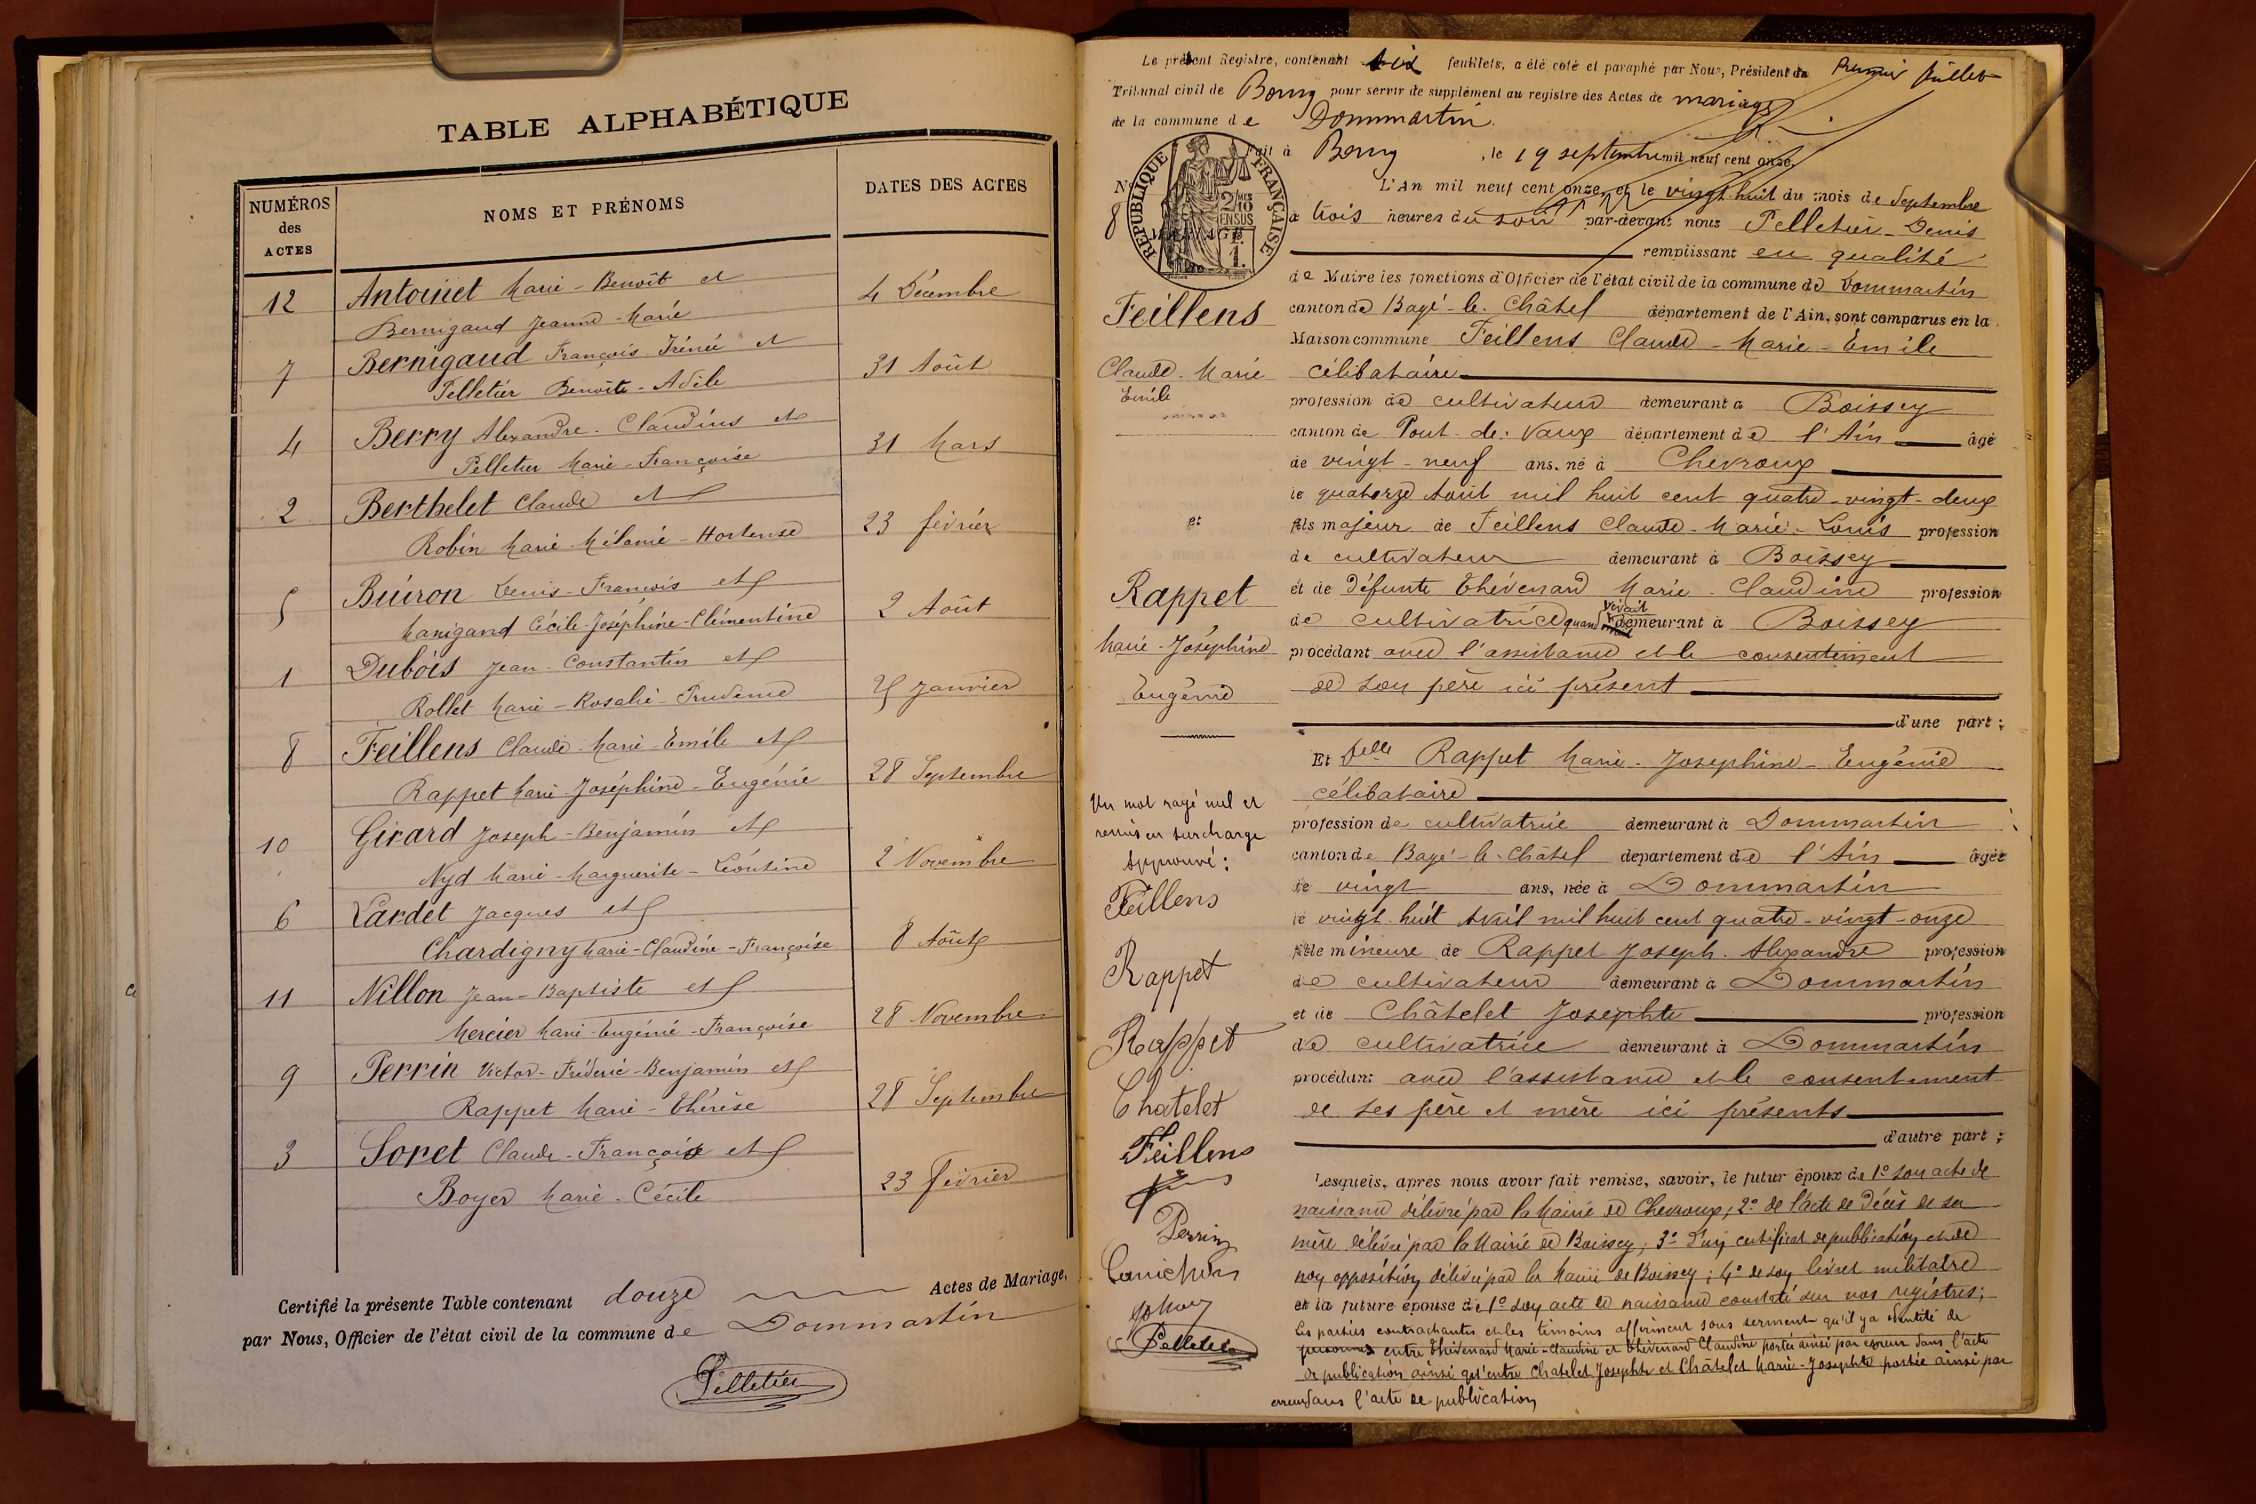 TABLE ALPHABÉTIQUE
NUMÉROS des ACTES
NOMS ET PRÉNOMS
DATES DES ACTES
12 Antoinet Marie-Benoît et
Bernigaud Jeanne-Marie
4 Décembre
7 Bernigaud François-Irénée et
Pelletier Benoîte-Adèle
31 Août
4 Berry Alexandre-Claudius et
Pelletier Marie-Françoise
31 Mars
2 Berthelet Claude et
Robin Marie-Mélanie-Hortense
23 février
5 Buiron Denis-François et
Manigand Cécile-Joséphine-Clémentine
2 Août
1 Dubois Jean-Constantin et
Rollet Marie-Rosalie-Prudence
25 Janvier
8 Feillens Claude-Marie-Emile et
Rappet Marie-Joséphine-Eugénie
28 Septembre
10 Girard Joseph-Benjamin et
Nyd Marie-Marguerite-Léontine
2 Novembre
6 Lardet Jacques et
Chardigny Marie-Claudine-Françoise
8 Août
11 Nillon Jean-Baptiste et
Mercier Marie-Eugénie-Françoise
28 Novembre
9 Perrin Victor-Fréderic-Benjamin et
Rappet Marie-Thérèse
28 Septembre
3 Soret Claude-François et
Boyer Marie-Cécile
23 février
Certifié la présente Table contenant douze Actes de Mariage,
par Nous, Officier de l'état civil de la commune de Dommartin
Pelletier
Le présent Registre, contenant six feuillets, a été coté et paraphé par Nous, Président du
Premier feuillet
Tribunal civil de Bourg pour servir de supplément au registre des Actes de mariage
de la commune de Dommartin.
Fait à Bourg, le 19 septembre mil neuf cent onze.
RÉPUBLIQUE FRANÇAISE
2/10 EN SUS
1 F.
N° 8
L'An mil neuf cent onze et le vingt-huit du mois de Septembre
à trois heures du soir par-devant nous Pelletier-Denis
remplissant en qualité
de Maire les fonctions d'Officier de l'état civil de la commune de Dommartin
canton de Bagé-le-Châtel département de l'Ain, sont comparus en la
Maison commune Feillens Claude-Marie-Emile
célibataire
profession de cultivateur demeurant à Boissey
canton de Pont-de-Vaux département de l'Ain âgé
de vingt-neuf ans, né à Chevroux
le quatorze Avril mil huit cent quatre-vingt-deux
fils majeur de Feillens Claude-Marie-Louis profession
de cultivateur demeurant à Boissey
et de défunte Thévenard Marie-Claudine profession
de cultivatrice quand vivait demeurant à Boissey
procédant avec l'assistance et le consentement
de son père ici présent
d'une part;
Et Delle Rappet Marie-Josephine-Eugénie
célibataire
profession de cultivatrice demeurant à Dommartin
canton de Bagé-le-Châtel département de l'Ain âgée
de vingt ans, née à Dommartin
le vingt-huit Avril mil huit cent quatre-vingt-onze
fille mineure de Rappet Joseph-Alexandre profession
de cultivateur demeurant à Dommartin
et de Châtelet Josephte profession
de cultivatrice demeurant à Dommartin
procédant avec l'assistance et le consentement
de ses père et mère ici présents
d'autre part;
Lesquels, après nous avoir fait remise, savoir, le futur époux de 1° son acte de
naissance délivré par la Mairie de Chevroux; 2° de l'acte de décès de sa
mère délivré par la Mairie de Boissey; 3° d'un certificat de publication et de
non opposition délivré par la Mairie de Boissey; 4° de son livret militaire
et la future épouse de 1° son acte de naissance constaté sur nos registres;
Les parties contractantes et les témoins affirment sous serment qu'il y a identité de
personnes entre Thévenard Marie-Claudine et Thévenard Claudine portée ainsi par erreur dans l'acte
de publication ainsi qu'entre Chatelet Josephte et Châtelet Marie-Josephte portée ainsi par
erreur dans l'acte de publication
Feillens
Claude-Marie
Emile
et
Rappet
Marie-Joséphine
Eugénie
Un mot rayé nul et
remis en surcharge
Approuvé:
Feillens
Rappet
Rappet
Chatelet
Feillens
Perrin
Pelletier